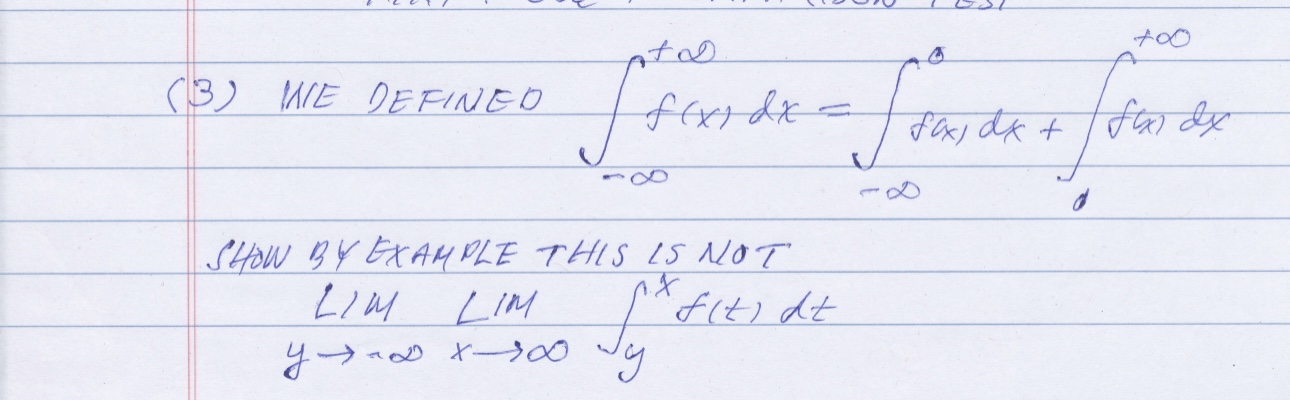 (3) WE DEFINED ∫_{-∞}^{+∞} f(x) dx = ∫_{-∞}^{0} f(x) dx + ∫_{0}^{+∞} f(x) dx
SHOW BY EXAMPLE THIS IS NOT
LIM LIM ∫_{y}^{x} f(t) dt
y → -∞ x → ∞